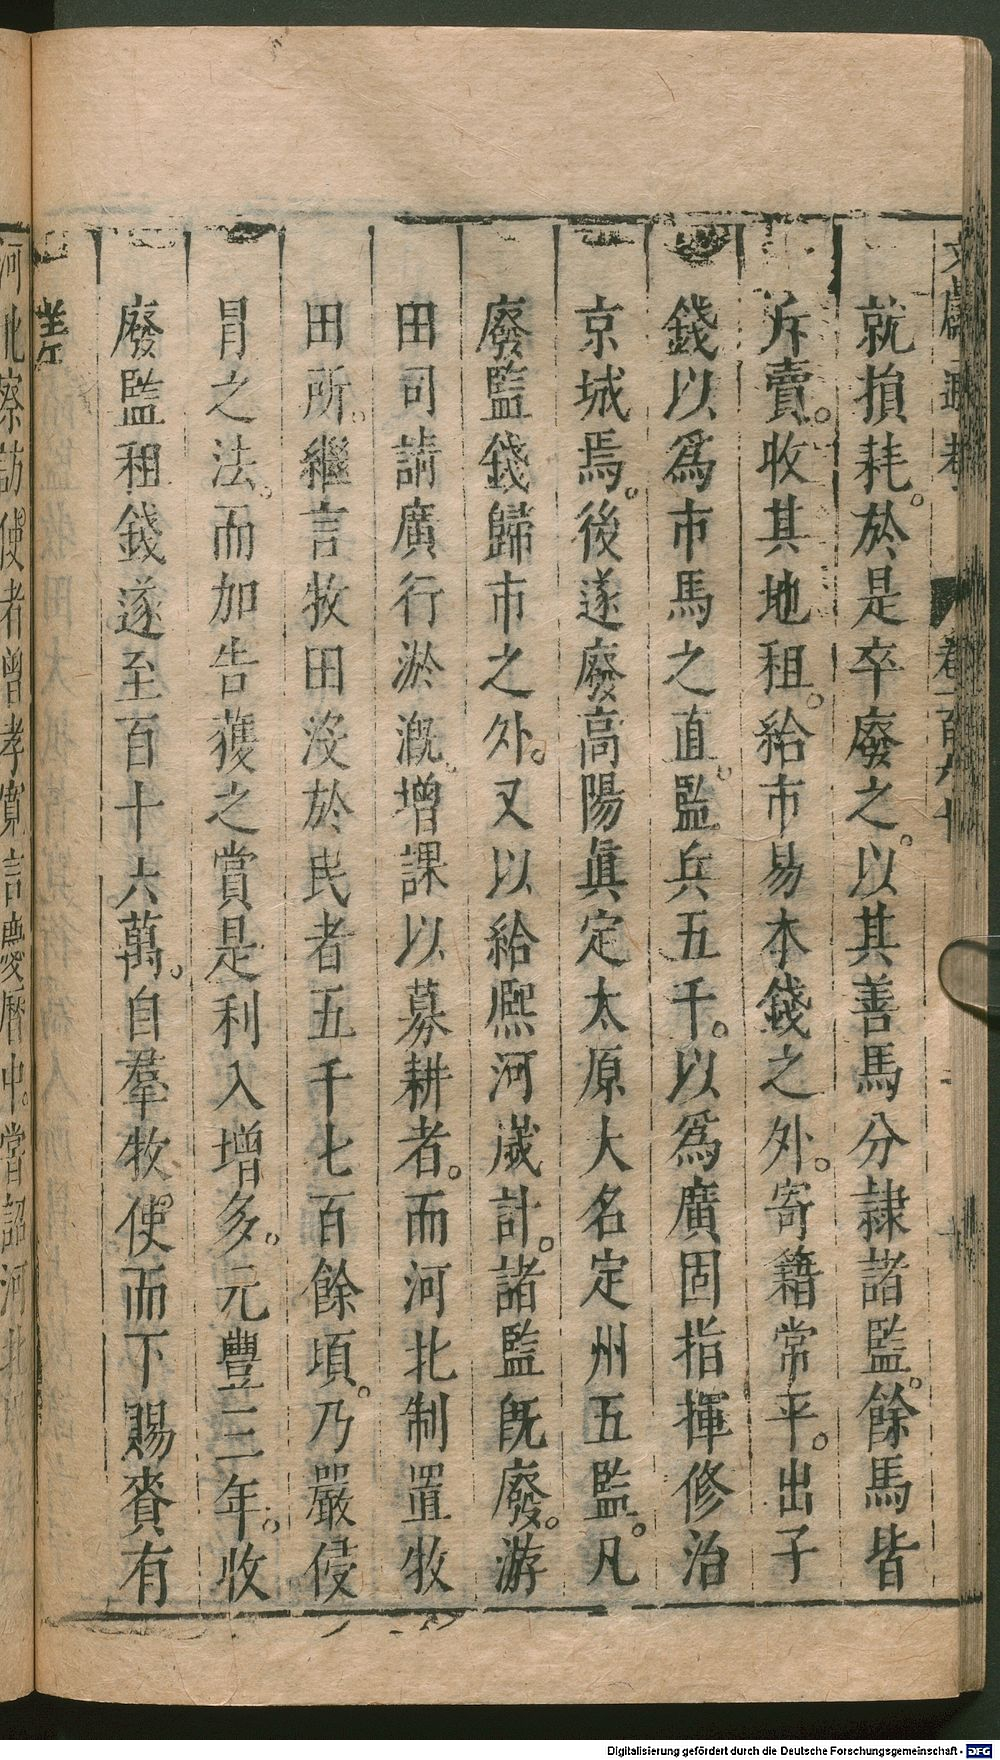 就損耗。於是卒廢之。以其善馬分隷諸監。餘馬皆
斥賣。收其地租。給市易本錢之外。寄籍常平。出子
錢以爲市馬之直。監兵五千。以爲廣固指揮修治
京城焉。後遂廢高陽眞定太原大名定州五監。凡
廢監錢歸市之外。又以給熈河歲計。諸監旣廢。游
田司請廣行淤漑。增課以募耕者。而河北制置牧
田所。繼言牧田没於民者五千七百餘頃。乃嚴侵
冒之法。而加告獲之賞是利入增多。元豐三年。收
廢監租錢遂至百十六萬。自羣牧使而下賜賚有
河北察訪使者曾孝寬言慶曆中。嘗詔河北
Digitalisierung gefördert durch die Deutsche Forschungsgemeinschaft - DFG